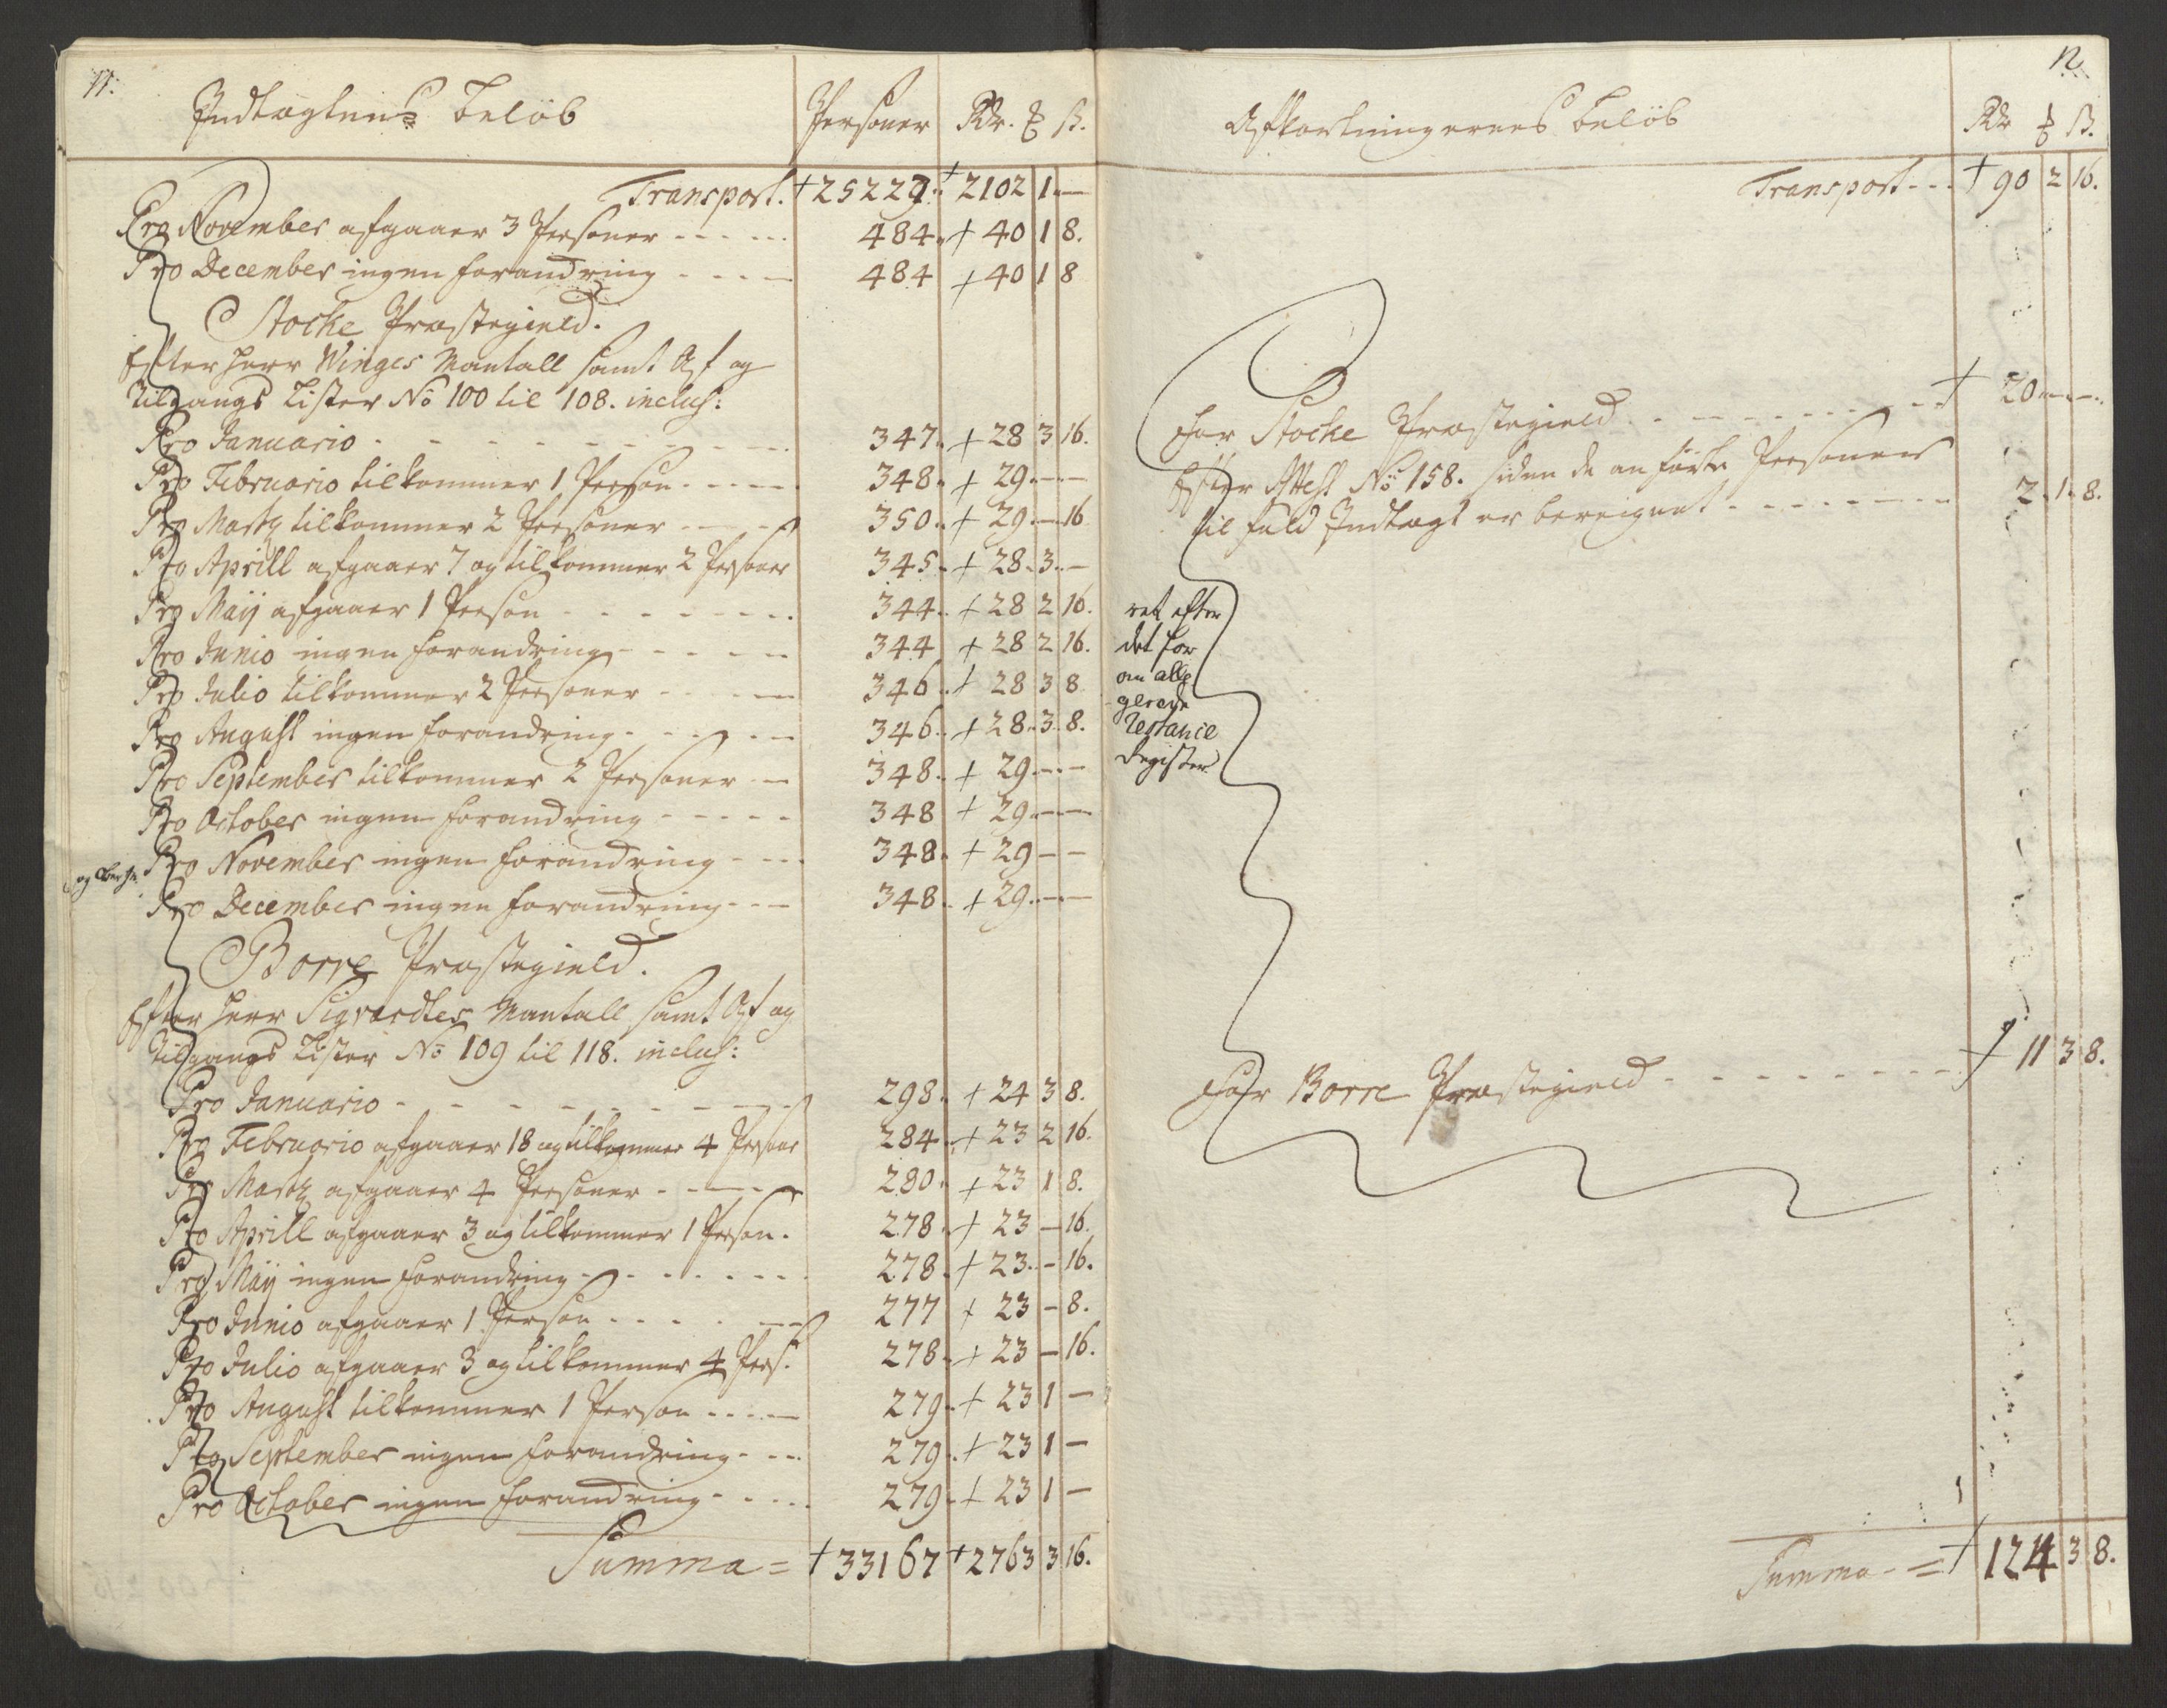 11.
Indtægtens Beløb Personer Rdr. ℔ ß.
Transport. + 25229. + 2102 1 —
Pro November afgaaer 3 Personer - - - - - 484. + 40 1 8.
Pro December ingen forandring - - - - 484 + 40 1 8
Stocke Præstegield.
Efter Herr Winges Mantall samt Af og
Tilgangs Lister No 100 til 108. inclus:
Pro Januario - - - - - - - - 347. + 28 3 16.
Pro Februario tilkommer 1 Person - - - - 348. + 29 — —
Pro Marty tilkommer 2 Personer - - - - 350. + 29 — 16
Pro Aprill afgaaer 7 og tilkommer 2 Personer 345. + 28. 3. —
Pro Maij afgaaer 1 Person - - - - - - 344. + 28 2 16.
Pro Junio ingen forandring - - - - - 344 + 28 2 16.
Pro Julio tilkommer 2 Personer - - - - 346. + 28 3 8
Pro August ingen forandring - - - - - 346. + 28. 3. 8.
Pro September tilkommer 2 Personer - - 348. + 29 — —
Pro October ingen forandring - - - - - 348 + 29 — —
Pro November ingen forandring - - - 348. + 29 — —
og
Pro December ingen forandring - - - 348. + 29 — —
Borre Præstegield.
Efter Herr Sigvardtes Mantall samt Af og
Tilgangs Lister No 109 til 118. inclus:
Pro Januario - - - - - - - - 298. + 24 3 8.
Pro Februario afgaaer 18 og tilkommer 4 Personer 284. + 23 2 16.
Pro Marty afgaaer 4 Personer - - - - - 280. + 23 1 8.
Pro Aprill afgaaer 3 og tilkommer 1 Person. 278. + 23 — 16.
Pro Maij ingen forandring - - - - - - 278. + 23. — 16.
Pro Junio afgaaer 1 Person - - - - - - 277 + 23 — 8.
Pro Julio afgaaer 3 og tilkommer 4 Pers: 278. + 23 — 16.
Pro August tilkommer 1 Person - - - - 279. + 23 1 —
Pro September ingen forandring - - - 279. + 23 1 —
Pro October ingen forandring - - - - 279. + 23 1 —
Summa = + 33167 + 2763 3 16.
12
Afkortningernes Beløb Rdr ℔ ß.
Transport - - - + 90 2 16.
For Stocke Præstegield - - - - - - - + 20 — —
Efter Attest No 158. siden de anførte Personer
til fuld Indtægt er beregnet - - - - - - 2. 1. 8.
ret efter
det for
om alle
gerede
Restance
Register
For Borre Præstegield - - - - - - - - + 11 3 8.
Summa - = + 124 3 8.